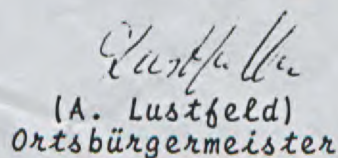 (A. Lustfeld)
Ortsbürgermeister